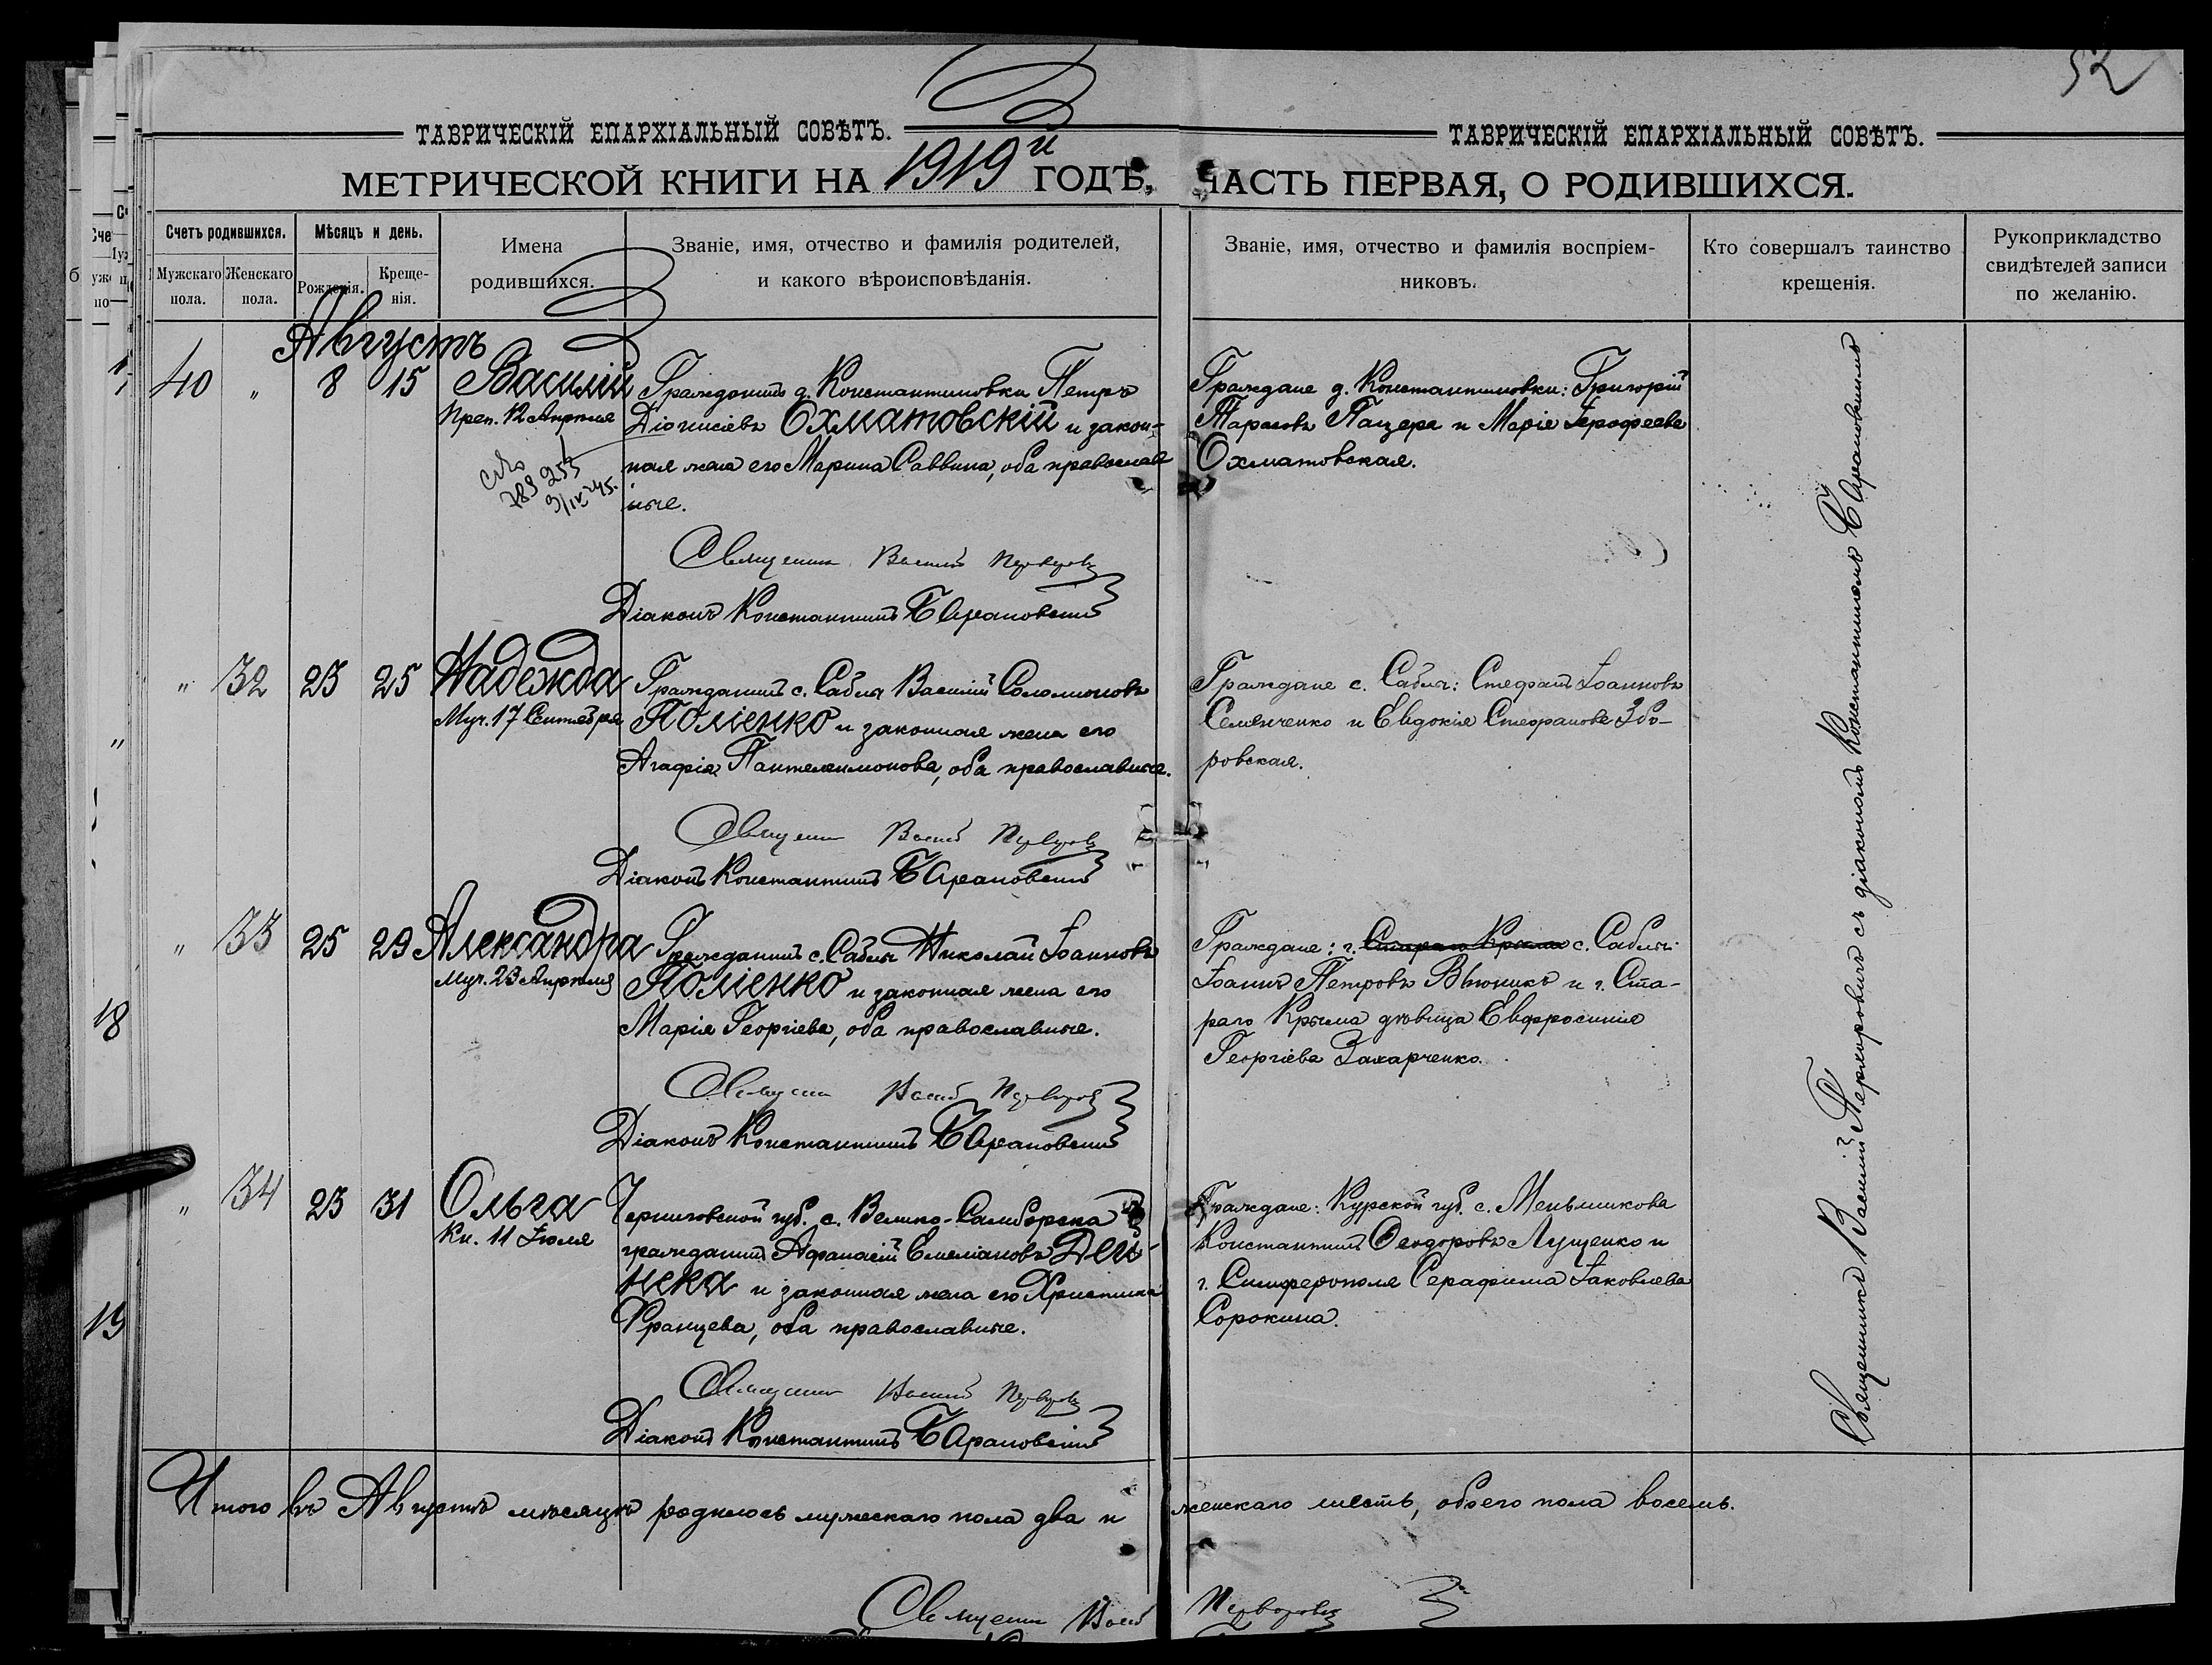 52
ТАВРИЧЕСКІЙ ЕПАРХІАЛЬНЫЙ СОВѢТЪ.
ТАВРИЧЕСКІЙ ЕПАРХІАЛЬНЫЙ СОВѢТЪ.
МЕТРИЧЕСКОЙ КНИГИ НА 1919й ГОДЪ, ЧАСТЬ ПЕРВАЯ, О РОДИВШИХСЯ.
Счетъ родившихся.
Мужскаго пола.
Женскаго пола.
Мѣсяцъ и день.
Рожденія.
Креще-
нія.
Имена
родившихся.
Званіе, имя, отчество и фамилія родителей,
и какого вѣроисповѣданія.
Званіе, имя, отчество и фамилія воспріем-
никовъ.
Кто совершалъ таинство
крещенія.
Рукоприкладство
свидѣтелей записи
по желанію.
Августъ
40 " 8 15 Василій
Преп. 12 Апрѣля
789 253
9/IX 45.
Гражданинъ д. Константиновки Петръ
Діонисіевъ Охматовскій и закон-
ная жена его Марина Саввина, оба православ
ные.
Священникъ Василій
Діаконъ Константинъ Барановскій
Граждане д. Константиновки: Григорій
Тарасовъ Пацера и Марія Іерофеева
Охматовская.
" 32 23 25 Надежда
Муч. 17 Сентября
Гражданинъ с. Саблы Василій Соломоновъ
Поліенко и законная жена его
Агафія Пантелеимонова, оба православные.
Священникъ Василій
Діаконъ Константинъ Барановскій
Граждане с. Саблы: Стефанъ Іоанновъ
Семенченко и Евдокія Стефанова Збо-
ровская.
" 33 25 29 Александра
Муч. 23 Апрѣля
Гражданинъ с. Саблы Николай Іоанновъ
Поліенко и законная жена его
Марія Георгіева, оба православные.
Священникъ Василій
Діаконъ Константинъ Барановскій
Граждане: г. Стараго Крыма с. Саблы:
Іоаннъ Петровъ Вьюникъ и г. Ста-
раго Крыма дѣвица Евфросинія
Георгіева Захарченко.
" 34 23 31 Ольга
Кн. 11 Іюля
Черниговской губ. с. Велико-Самборска
гражданинъ Афанасій Емеліановъ Дей-
нека и законная жена его Христина
Францева, оба православные.
Священникъ Василій
Діаконъ Константинъ Барановскій
Граждане: Курской губ. с. Меньшикова
Константинъ Ѳеодоровъ Лущенко и
г. Симферополя Серафима Іаковлева
Сорокина.
Священникъ Василій съ діакономъ Константиномъ Барановскимъ
Итого въ Августѣ мѣсяцѣ родилось мужескаго пола два и женскаго шесть, обоего пола восемь.
Священникъ Василій
18
19